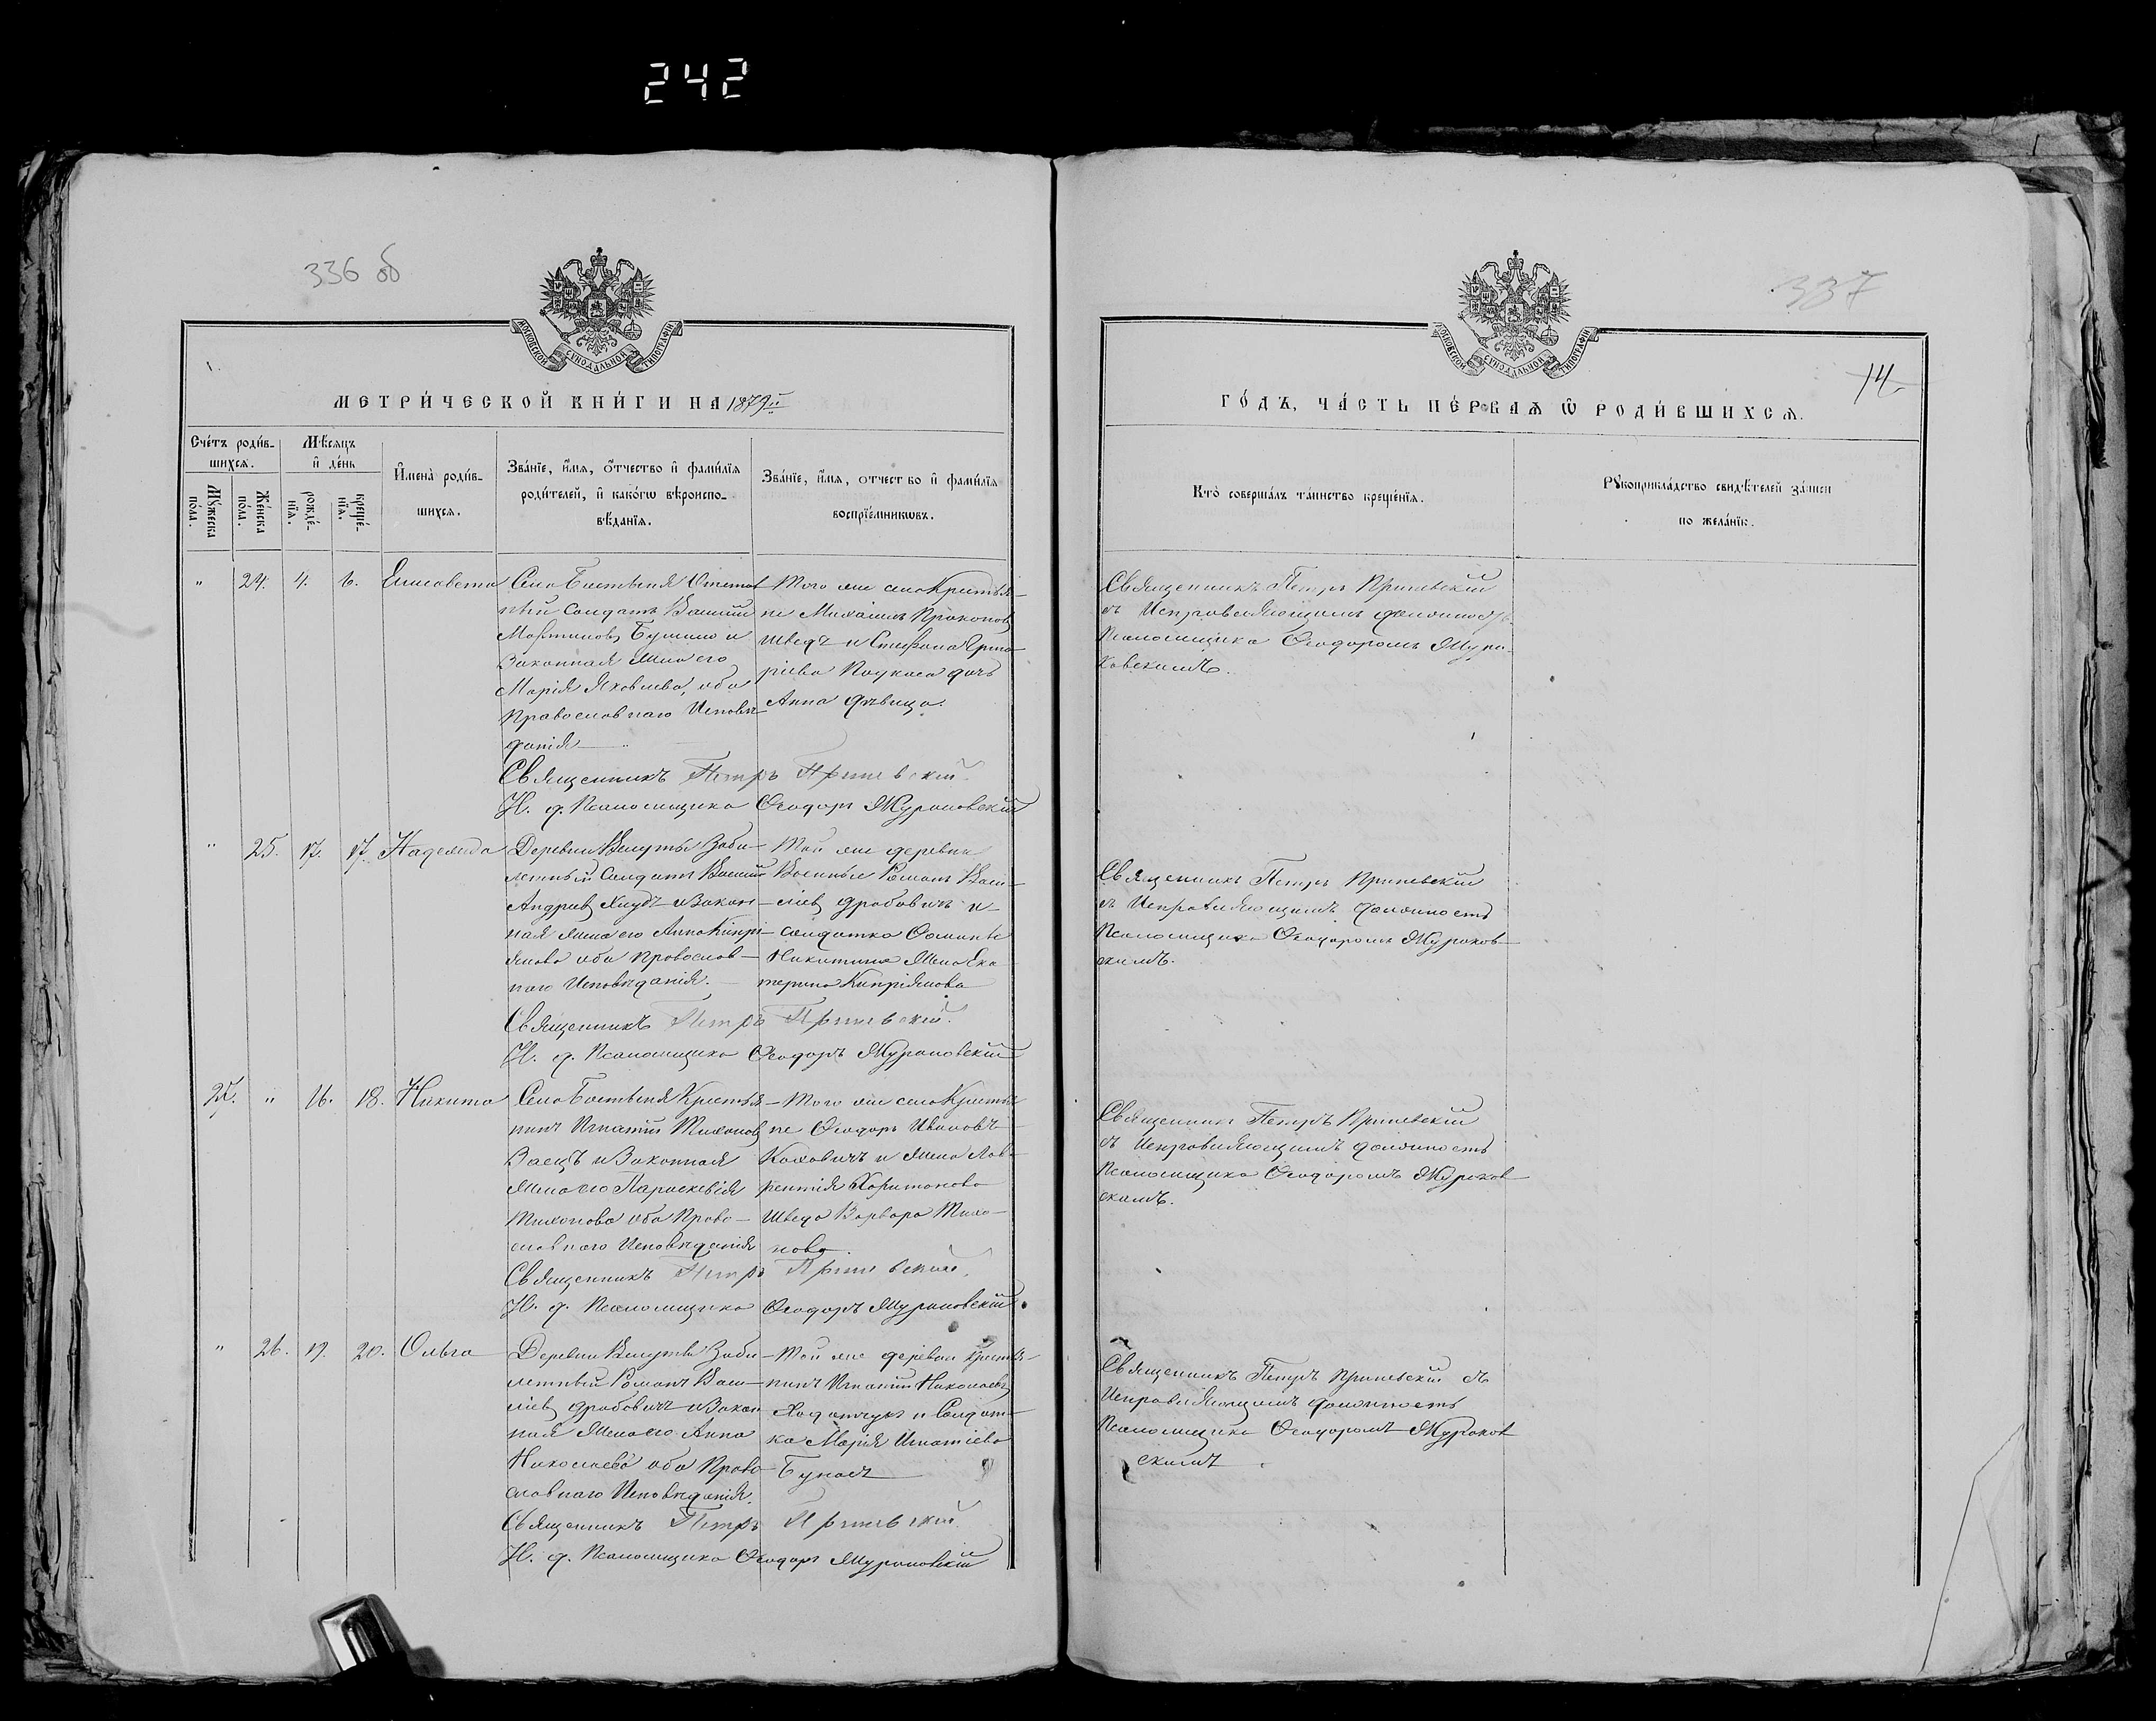 242
336 об
МОСКОВСКОЙ СѴНОДАЛЬНОЙ ТИПОГРАФІИ
МЕТРИ́ЧЕСКОЙ КНИ́ГИ НА 1879й
Сче́тъ роди́в-
шихсѧ.
Мѣ́сѧцъ
и҆ де́нь
Мꙋ́жеска
по́ла.
Же́нска
по́ла.
рожде́-
нїѧ.
креще́-
нїѧ.
И҆мена̀ роди́в-
шихсѧ.
Зва́нїе, и҆́мѧ, ѻ҆́тчество и҆ фами́лїѧ
роди́телей, и҆ како́гѡ вѣроиспо-
вѣ́данїѧ.
Зва́нїе, и҆́мѧ, отчество и҆ фами́лїѧ
воспрїе́мникѡвъ.
" 24. 4. 6. Елисавета
Села Бостыня Отстав
ный Солдатъ Василій
Мартиновъ и
Законная Жена его
Марія Яковлева, оба
Православнаго Исповѣ
данія
Того же села Крестья-
не Михаилъ Прокоповъ
Шведъ и Стефана Григо
ріева дочь
Анна дѣвица.
Священникъ Петръ
И. д. Псаломщика Ѳеодоръ Жураковскій
" 25. 17. 17. Надежда
Деревни Велуты Заби-
летный Солдатъ Василій
Андреевъ и Закон-
ная жена его Анна Кипрі-
янова оба Православ-
наго Исповѣданія.
Той же деревни
Военные Романъ Васи-
ліевъ Дробовичъ и
солдатка
Никитина Жена Ека
терина Кипріянова
Священникъ Петръ
И. д. Псаломщика Ѳеодоръ Жураковскій
27. " 16. 18. Никита
Села Бостыня Крестья-
нинъ Игнатій Тихоновъ
Заецъ и Законная
Жена его Параскевія
Тихонова оба Право-
славнаго Исповѣданія
Того же села Крестья
не Ѳеодоръ Ивановъ
Коховичъ и Жена Лав-
рентія Харитонова
Шведа Варвара Тихо-
нова.
Священникъ Петръ
И. д. Псаломщика Ѳеодоръ Жураковскій
" 26. 19. 20. Ольга
Деревни Велуты Заби-
летный Романъ Васи-
ліевъ Дробовичъ и Закон
ная Жена его Анна
Николаева оба Право-
славнаго Исповѣданія.
Той же деревни Крестья-
нинъ Игнатій Николаевъ
Ходатчукъ и Солдат-
ка Марія Игнатіева
Священникъ Петръ
И. д. Псаломщика Ѳеодоръ Жураковскій
337
14
МОСКОВСКОЙ СѴНОДАЛЬНОЙ ТИПОГРАФІИ
ГО́ДЪ, ЧА́СТЬ ПЕ́РВАѦ Ѡ҆ РОДИ́ВШИХСѦ.
Кто̀ соверша́лъ та́инство креще́нїѧ.
Рꙋкоприкла́дство свидѣ́телей за́писи
по жела́нїю.
Священникъ Петръ
съ Исправляющимъ должность
Псаломщика Ѳеодоромъ Жура-
ковскимъ.
Священникъ Петръ
съ Исправляющимъ должность
Псаломщика Ѳеодоромъ Жураков-
скимъ.
Священникъ Петръ
съ Исправляющимъ должность
Псаломщика Ѳеодоромъ Жураков-
скимъ.
Священникъ Петръ съ
Исправляющимъ должность
Псаломщика Ѳеодоромъ Жураков
скимъ